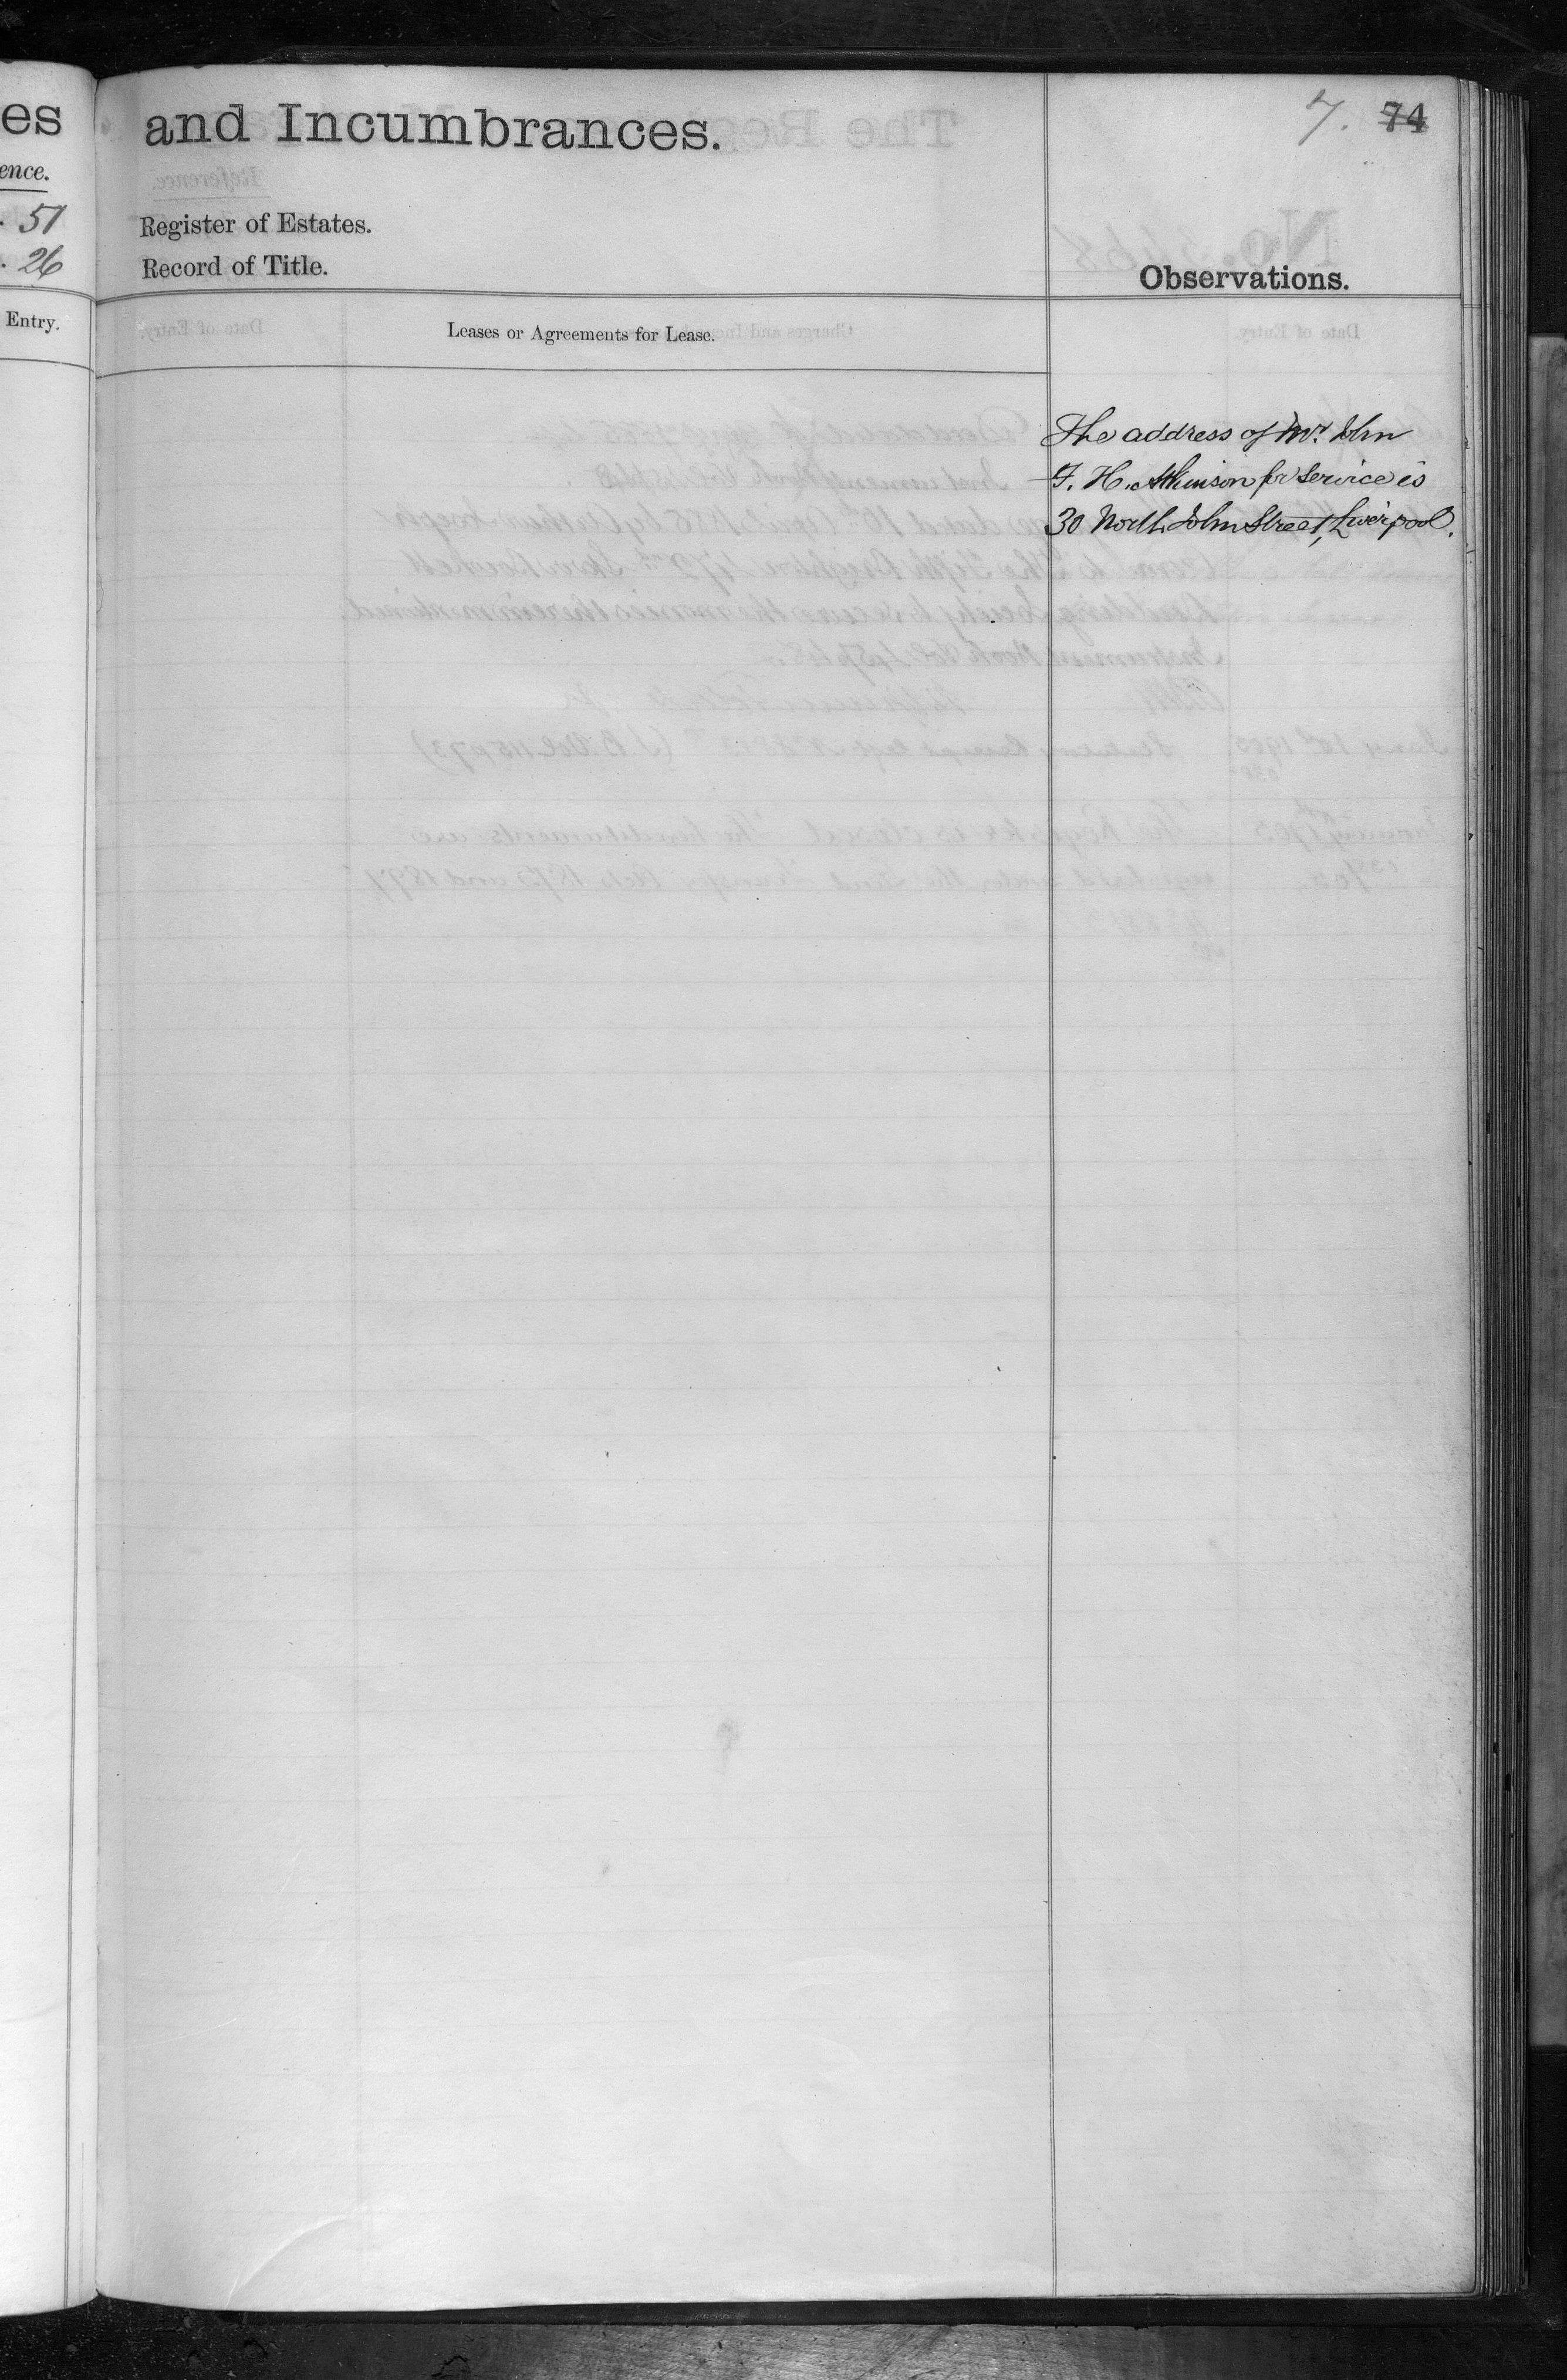 es
ence.
. 51
. 26
Entry.
and Incumbrances.
7. 74
Register of Estates.
Record of Title.
Observations.
Leases or Agreements for Lease.
The address of Mr. John
F. H. Atkinson for service is
30 North John Street, Liverpool.